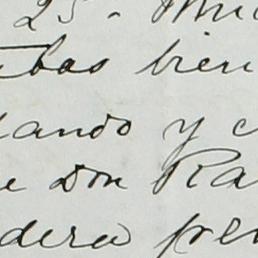 25. Mu
Ebas bien
ando y c
e Don Ra
dera pre